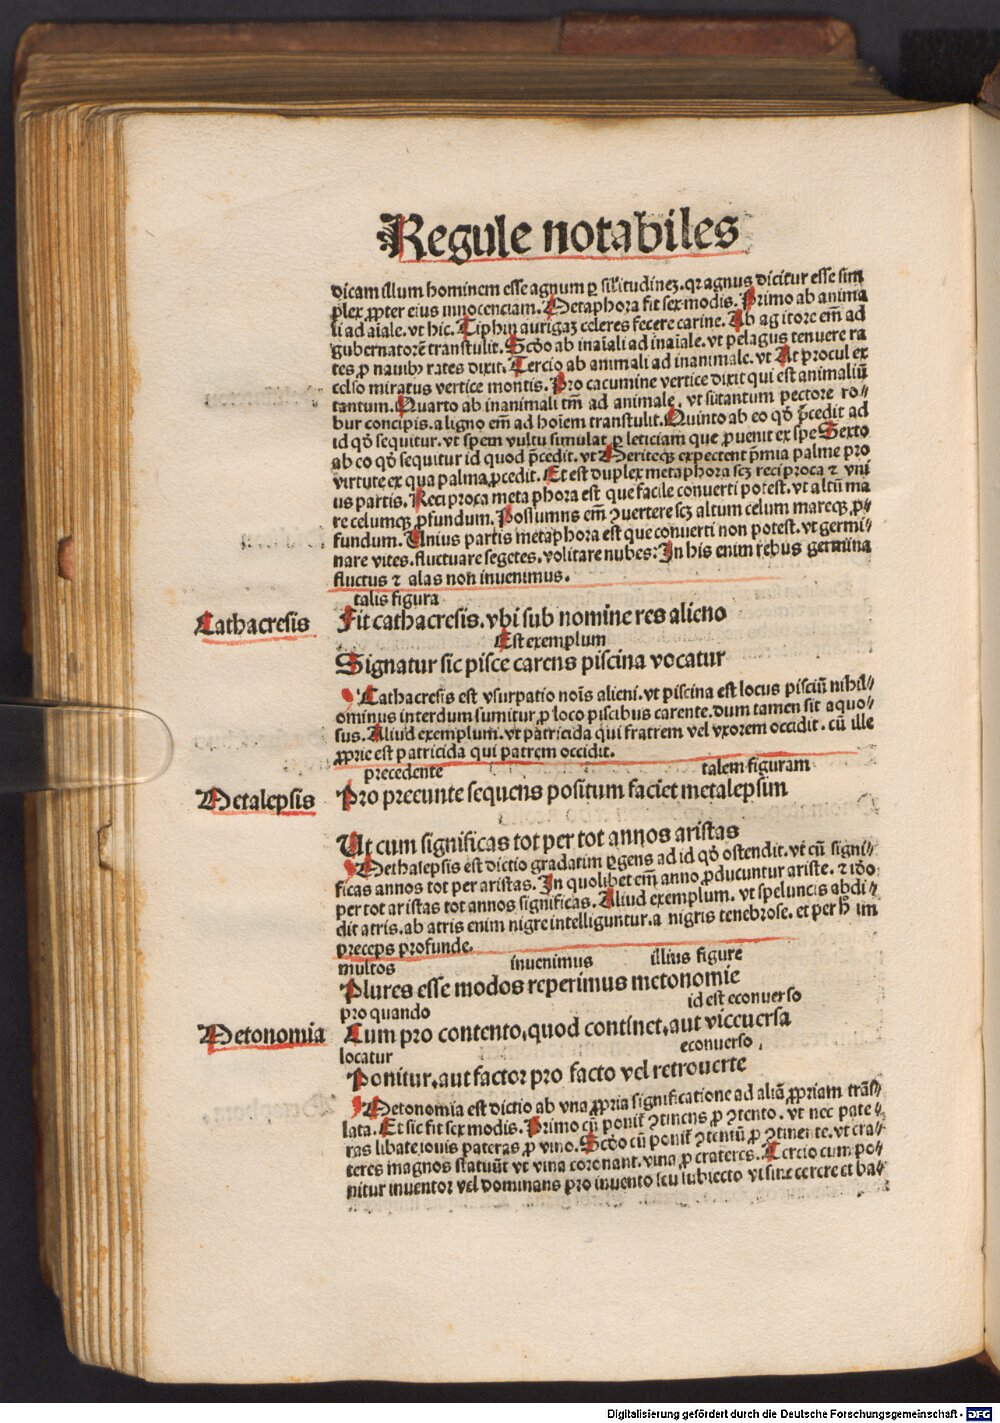 Regule notabiles
dicam illum hominem esse agnum ꝑ sil'itudinez. qꝛ agnus dicitur esse sim
plex ꝓpter eius innocenciam. Metaphora fit sex modis. Primo ab anima
li ad aīale. vt hic. Tiphin aurigaz celeres fecere carine. Ab agitore em̄ ad
gubernatorē transtulit. Scd̄o ab inaīali ad inaīale. vt pelagus tenuere ra
tes. ꝓ nauibꝫ rates dixit. Tercio ab animali ad inanimale. vt At procul ex
celso miratus vertice montis. Pro cacumine vertice dixit qui est animaliū
tantum. Quarto ab inanimali tm̄ ad animale. vt si tantum pectore ro⸗
bur concipis. a ligno em̄ ad hoīem transtulit. Quinto ab eo qd̄ p̄cedit ad
id qd̄ sequitur. vt spem vultu simulat ꝑ leticiam que ꝓuenit ex spe Sexto
ab eo qd̄ sequitur id quod p̄cedit. vt Meriteqꝫ expectent p̄mia palme pro
virtute ex qua palma ꝓcedit. Et est duplex metaphora scꝫ reciproca ⁊ vni
us partis. Reciproca metaphora est que facile conuerti potest. vt altū ma
re celumqꝫ ꝓfundum. Possumus em̄ ꝯuertere scꝫ altum celum mareqꝫ ꝓ⸗
fundum. Unius partis metaphora est que conuerti non potest. vt germi⸗
nare vites. fluctuare segetes. volitare nubes: In his enim rebus germina
fluctus ⁊ alas non inuenimus.
talis figura
Cathacresis
Fit cathacresis. vbi sub nomine res alieno
Est exemplum
Signatur sic pisce carens piscina vocatur
Cathacresis est vsurpatio noīs alieni. vt piscina est locus pisciū nihil⸗
ominus interdum sumitur ꝓ loco piscibus carente. dum tamen sit aquo⸗
sus. Aliud exemplum. vt patricida qui fratrem vel vxorem occidit. cū ille
ꝓprie est patricida qui patrem occidit.
precedente talem figuram
Metalepsis
Pro preeunte sequens positum faciet metalepsim
Ut cum significas tot per tot annos aristas
Methalepsis est dictio gradatim ꝑgens ad id qd̄ ostendit. vt cū signi⸗
ficas annos tot per aristas. In quolibet em̄ anno ꝓducuntur ariste. ⁊ id̄o
per tot aristas tot annos significas. Aliud exemplum. vt speluncis abdi⸗
dit atris. ab atris enim nigre intelliguntur. a nigris tenebrose. et per h̄ im
preceps profunde.
multos inuenimus illius figure
Plures esse modos reperimus metonomie
pro quando id est econuerso
Metonomia
Cum pro contento. quod continet. aut viceuersa
locatur econuerso.
Ponitur. aut factor pro facto vel retrouerte
Metonomia est dictio ab vna ꝓpria significatione ad aliā ꝓpriam trās⸗
lata. Et sic fit sex modis. Primo cū poniť ꝯtinens ꝓ ꝯtento. vt nec pate⸗
ras libate iouis pateras ꝓ vino. Scd̄o cū poniť ꝯtentū ꝓ ꝯtinente. vt cra⸗
teres magnos statuūt vt vina coronant. vina ꝓ crateres. Tercio cum po⸗
nitur inuentor vel dominans pro inuento seu subiecto vt sine cerere et ba⸗
Digitalisierung gefördert durch die Deutsche Forschungsgemeinschaft - DFG